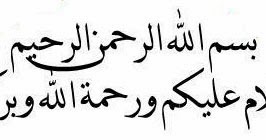 بسم الله الرحمن الرحيم
لام عليكم ورحمة الله وبر